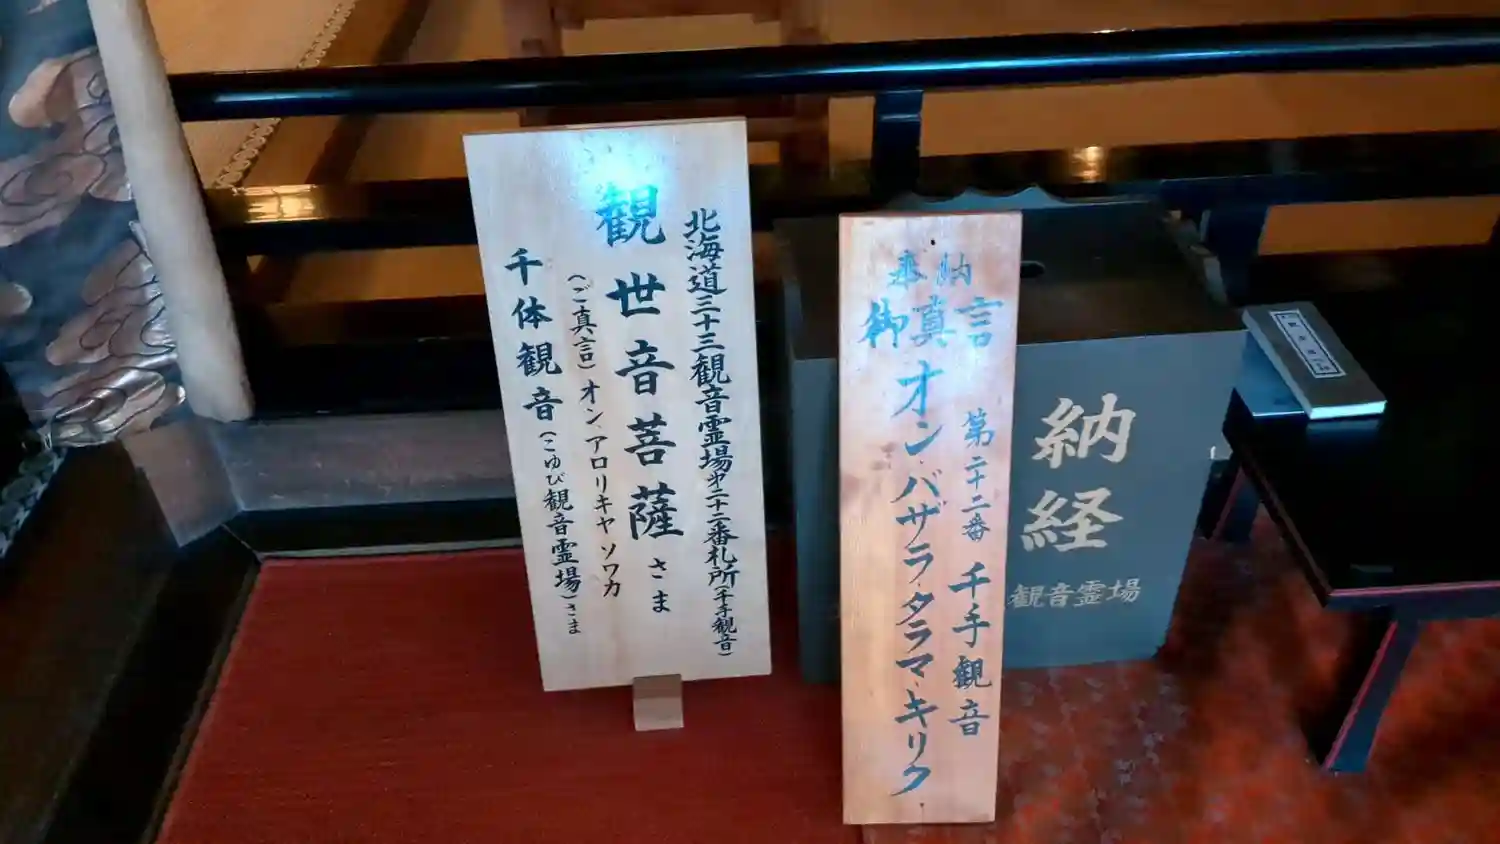 北海道三十三観音霊場第二十二番札所(千手観音)
観世音菩薩さま
(ご真言)オン.アロリキヤソワカ
千体観音(こゆび観音霊場)さま
奉納
御真言
第二十二番 千手観音
オン.バザラ.タラマ.キリク.
納経
観音霊場